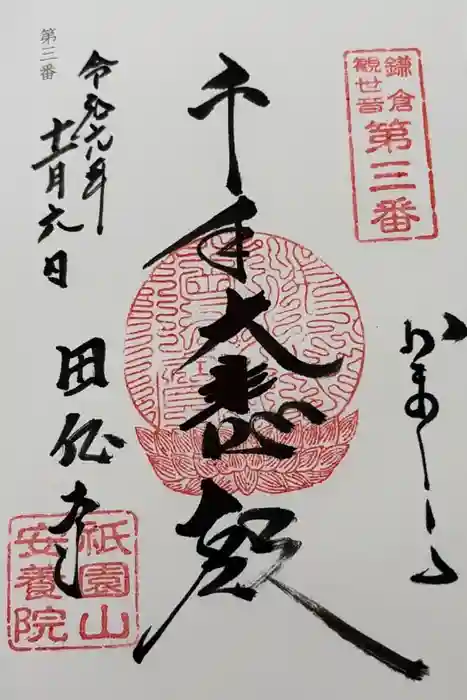 鎌倉
觀世音
第三番
かまくら
千手大悲殿
令和六年
十二月六日
田代寺
祇園山
安養院
第三番